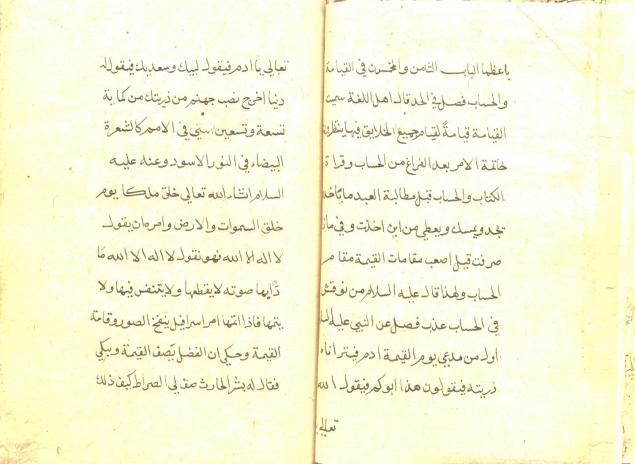 باعظها الباب الثامن والخمسون في القيامة
والحساب فصل في الحد قال اهل اللغة سميت
القيامة قيامة لقيام جميع الخلايق فيها ينتظرون
خاتمة الامر بعد الفراغ من الحساب وقراة
الكتاب والحساب قبل مطالبة العبد ما
ويمسك ويعطي من اين اخذت وفي ماذا
صرفت قيل اصعب مقامات القيمة مقام
الحساب ولهذا قال عليه السلام من نوقش
في الحساب عذب فصل عن النبي عليه السلام
اول من يدعي يوم القيمة ادم
ذريته فيقولون هذا ابوكم فيقول الله
تعالي
تعالي يا ادم فيقول لبيك وسعديك فيقول له
دنيا اخرج نصب جهنم من ذريتك من كماية
تسعة وتسعين امتي في الامم كالشعرة
البيضاء في الثور الاسود وعنه عليه
السلام ان الله تعالي خلق ملكا يوم
خلق السموات والارض وامره ان يقول
لا اله الا الله فهو يقول لا اله الا الله مادا
بها صوته لا يقطعها ولا يتنفس فيها ولا
يتمها فاذا اتمها امر اسرافيل ينفخ الصور وقامة
القيمة وحكي ان الفضل يصف القيمة ويبكي
فقال له بشر الحارث صف لي الصراط كيف ذلك